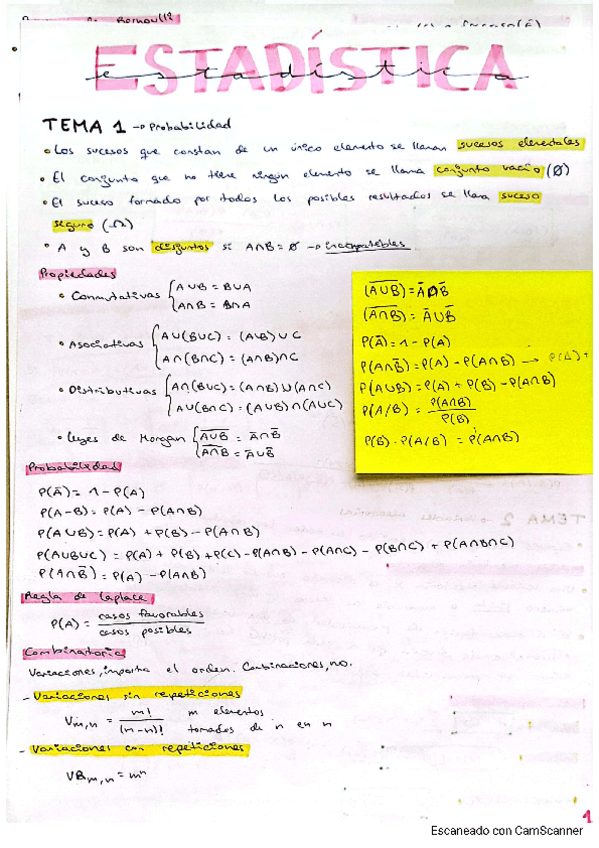 ESTADÍSTICA
estadística
TEMA 1 → Probabilidad
• Los sucesos que constan de un único elemento se llaman sucesos elementales
• El conjunto que no tiene ningún elemento se llama conjunto vacío (Ø)
• El suceso formado por todos los posibles resultados se llama suceso
seguro (Ω)
• A y B son disjuntos si A∩B = Ø → incompatibles
Propiedades
• Conmutativas { A∪B = B∪A
A∩B = B∩A
• Asociativas { A∪(B∪C) = (A∪B)∪C
A∩(B∩C) = (A∩B)∩C
• Distributivas { A∩(B∪C) = (A∩B)∪(A∩C)
A∪(B∩C) = (A∪B)∩(A∪C)
• Leyes de Morgan { A̅∪̅B̅ = A̅∩B̅
A̅∩̅B̅ = A̅∪B̅
(A̅∪̅B̅) = A̅∩B̅
(A̅∩̅B̅) = A̅∪B̅
P(A̅) = 1 - P(A)
P(A∩B̅) = P(A) - P(A∩B) → P(A) +
P(A∪B) = P(A) + P(B) - P(A∩B)
P(A/B) = P(A∩B)
P(B)
P(B) · P(A/B) = P(A∩B)
Probabilidad
P(A̅) = 1 - P(A)
P(A-B) = P(A) - P(A∩B)
P(A∪B) = P(A) + P(B) - P(A∩B)
P(A∪B∪C) = P(A) + P(B) + P(C) - P(A∩B) - P(A∩C) - P(B∩C) + P(A∩B∩C)
P(A∩B̅) = P(A) - P(A∩B)
Regla de Laplace
P(A) = casos favorables
casos posibles
Combinatoria
Variaciones, importa el orden. Combinaciones, no.
- Variaciones sin repeticiones
Vm,n = m! / (m-n)! m elementos
tomados de n en n
- Variaciones con repeticiones
VRm,n = mⁿ
1
Escaneado con CamScanner